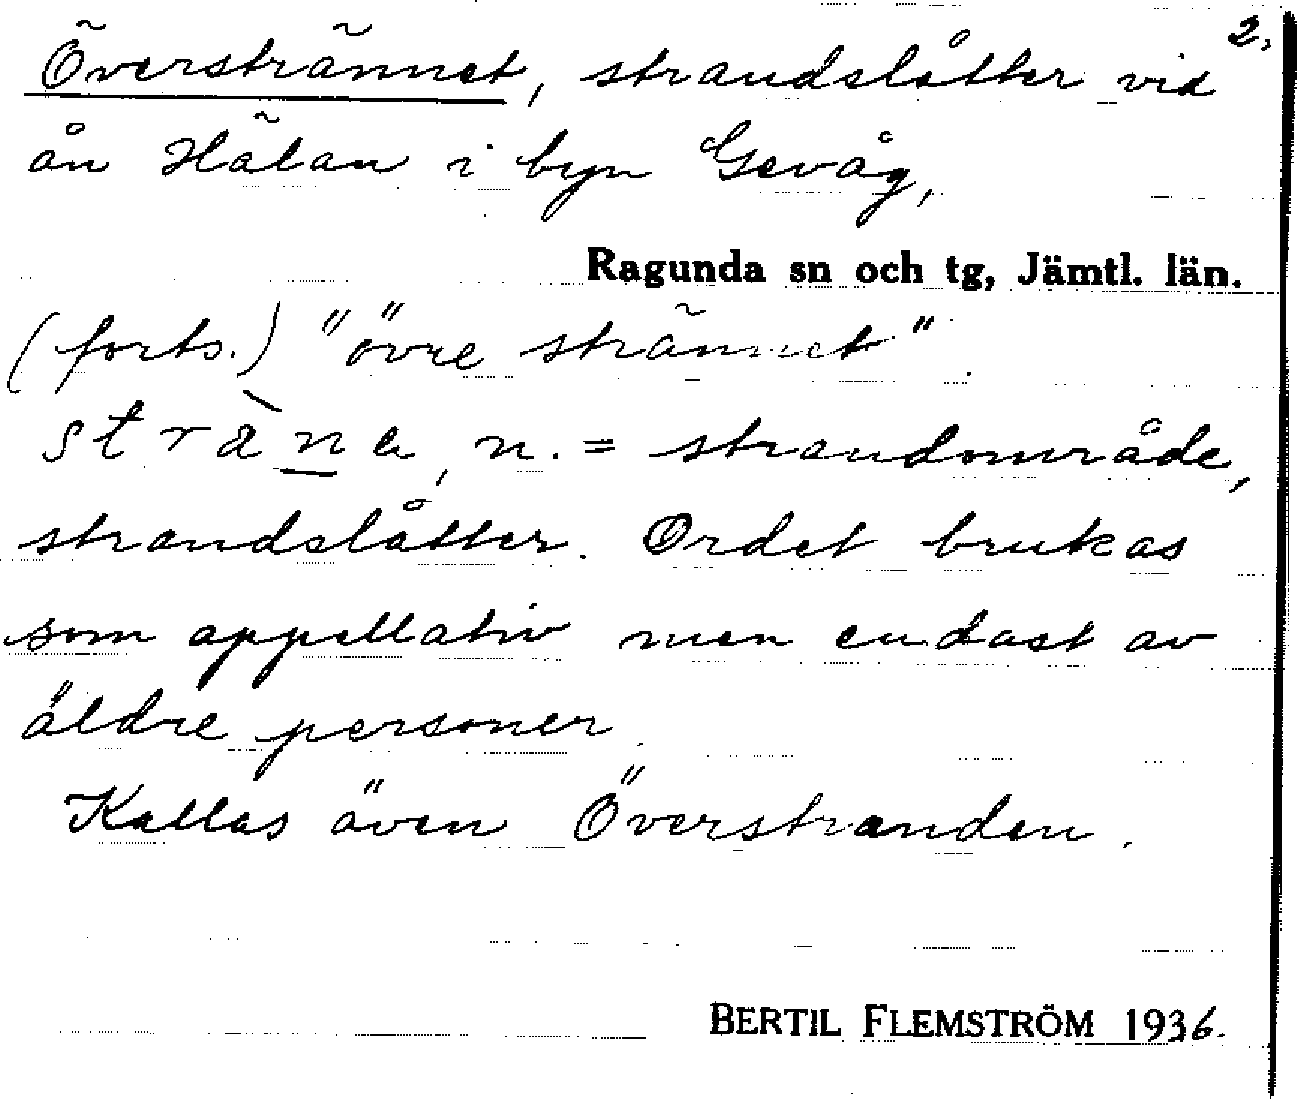 2.
Överstrännet, strandslåtter vid
ån Hälan i byn Gevåg,
Ragunda sn och tg, Jämtl. län.
(forts.) "övre strännet".
n. = strandområde,
strandslåtter. Ordet brukas
som appellativ men endast av
äldre personer.
Kallas även Överstranden.
BERTIL FLEMSTRÖM 1936.